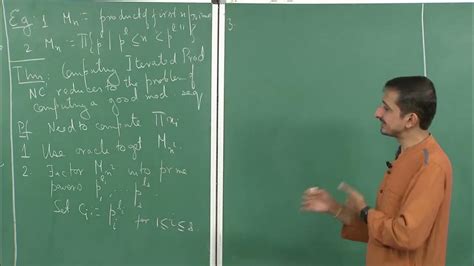 Eg: 1 Mₙ = product of first n primes
2 Mₙ = Π{p^l | p^l ≤ n < p^{l+1}}
Thm: Computing Iterated Prod
NC¹ reduces to the problem of
computing a good mod seq
Pf Need to compute Πxᵢ
1. Use oracle to get M_{n²}
2. Factor M_{n²} into prime
powers p₁^{l₁} ... p_s^{l_s}
Set cᵢ := pᵢ^{lᵢ} for 1≤i≤s
3.